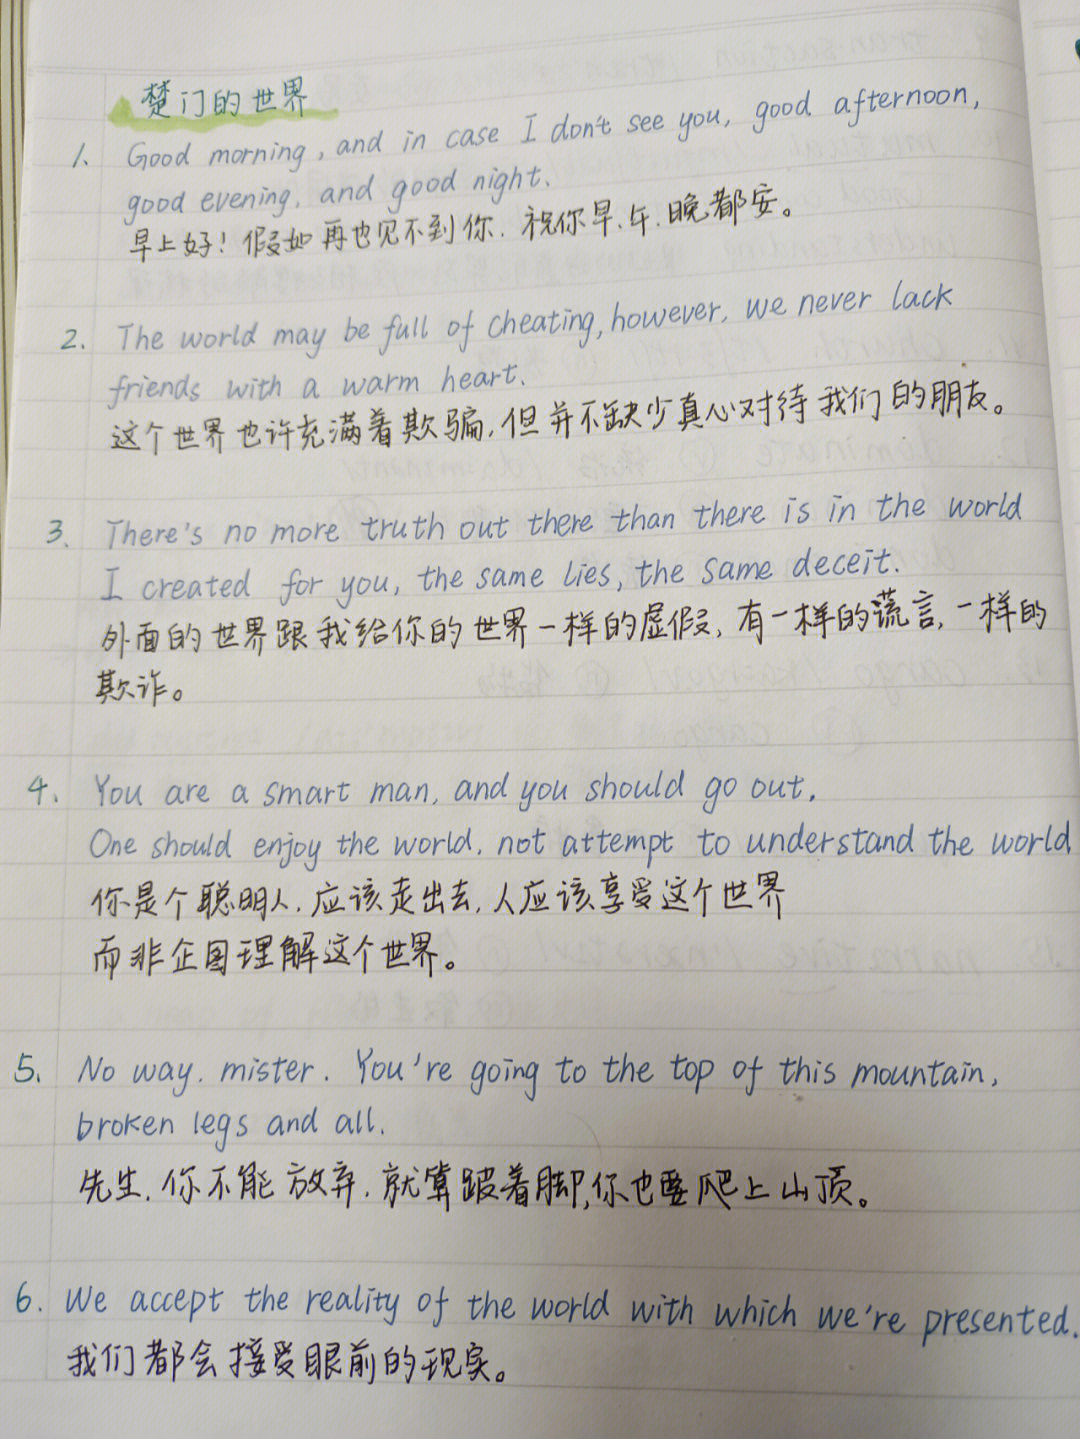 楚门的世界
1. Good morning, and in case I don't see you, good afternoon,
good evening, and good night.
早上好！假如再也见不到你，祝你早、午、晚都安。
2. The world may be full of cheating, however, we never lack
friends with a warm heart.
这个世界也许充满着欺骗，但并不缺少真心对待我们的朋友。
3. There's no more truth out there than there is in the world
I created for you, the same lies, the same deceit.
外面的世界跟我给你的世界一样的虚假，有一样的谎言，一样的
欺诈。
4. You are a smart man, and you should go out.
One should enjoy the world, not attempt to understand the world
你是个聪明人，应该走出去，人应该享受这个世界
而非企图理解这个世界。
5. No way, mister. You're going to the top of this mountain,
broken legs and all.
先生，你不能放弃，就算跛着脚，你也要爬上山顶。
6. We accept the reality of the world with which we're presented.
我们都会接受眼前的现实。